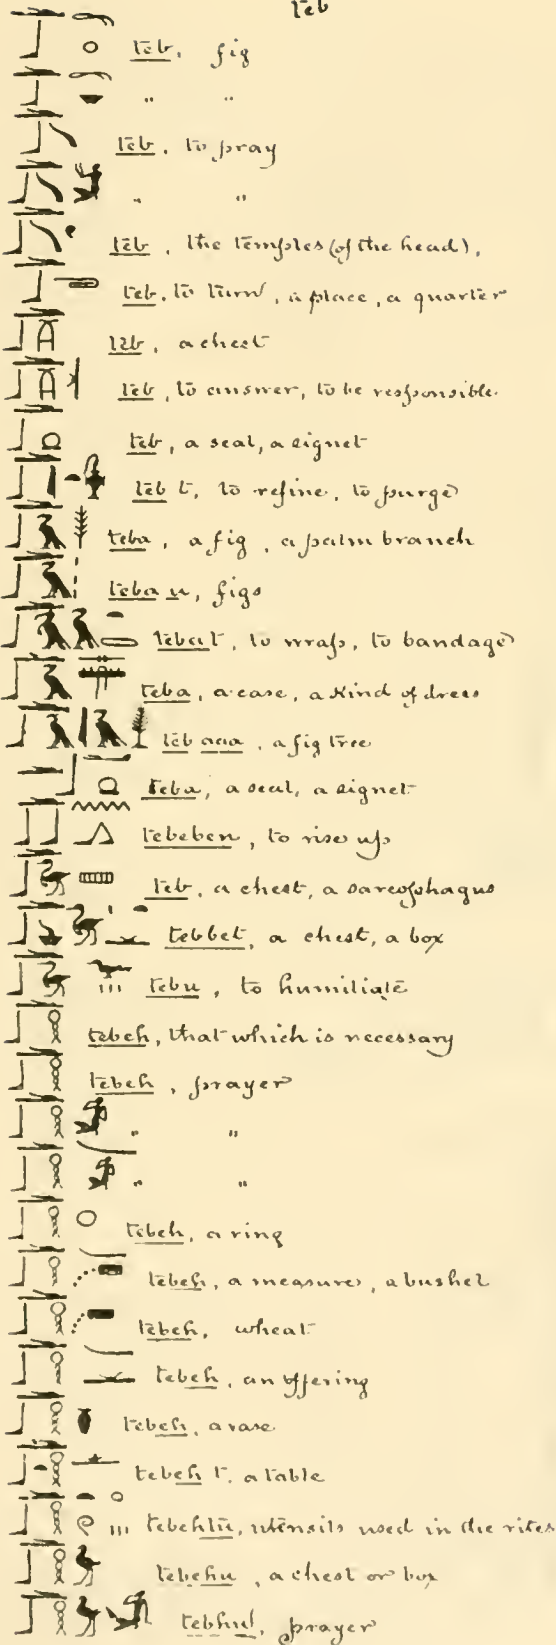 teb
teb, fig
" "
teb, to pray
" "
teb, the temples (of the head),
teb, to turn, a place, a quarter
teb, a chest
teb, to answer, to be responsible.
teb, a seal, a signet
teb t, to refine, to purge
teba, a fig, a palm branch
teba u, figs
tebat, to wrap, to bandage
teba, a case, a kind of dress
teb aaa, a fig tree
teba, a seal, a signet
tebeben, to rise up
teb, a chest, a sarcophagus
tebbet, a chest, a box
tebu, to humiliate
tebeh, that which is necessary
tebeh, prayer
" "
" "
tebeh, a ring
tebeh, a measure, a bushel
tebeh, wheat
tebeh, an offering
tebeh, a vase
tebeh t, a table
tebehtu, utensils used in the rites
tebehu, a chest or box
tebhu, prayer